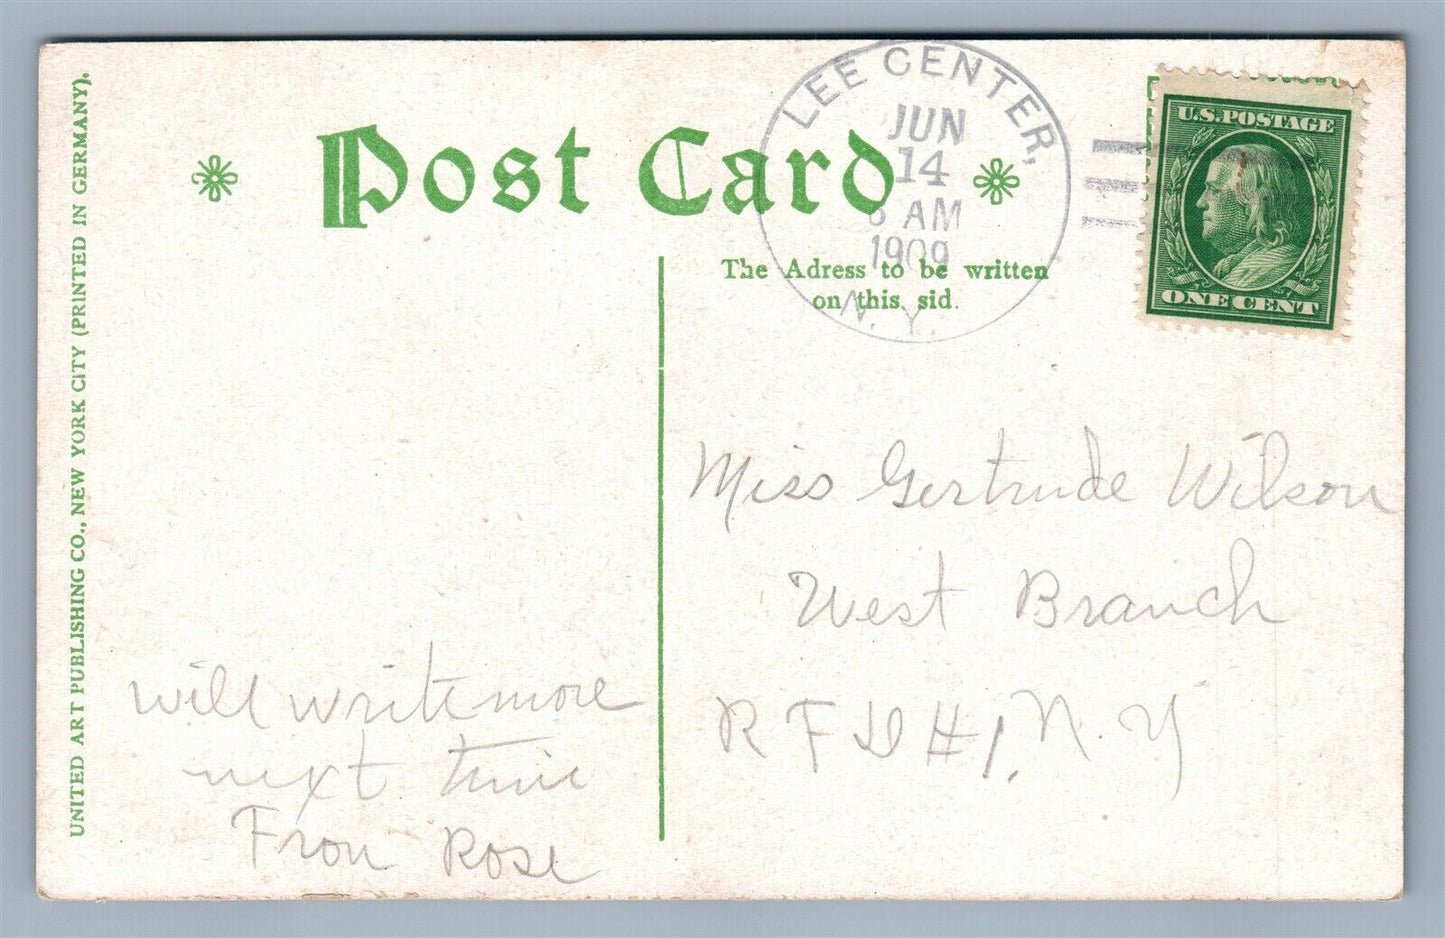 UNITED ART PUBLISHING CO., NEW YORK CITY (PRINTED IN GERMANY).
Post Card
LEE CENTER,
JUN
14
AM
1909
N. Y.
U.S. POSTAGE
ONE CENT
The Adress to be written
on this sid.
Miss Gertrude Wilson
West Branch
R F D #1, N. Y
will write more
next time
From Rose